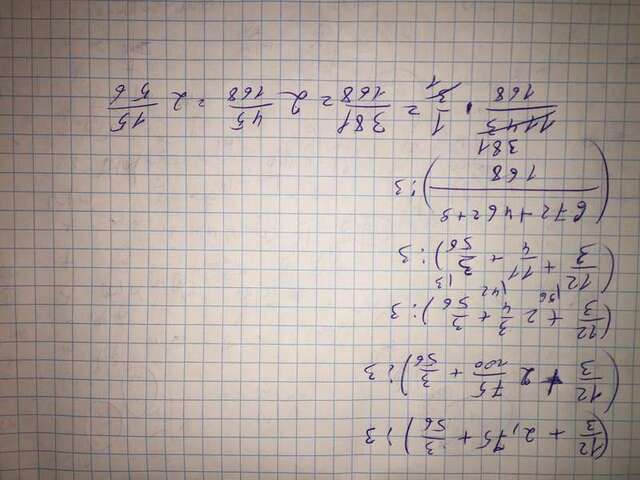 (12/3 + 2,75 + 3/56) : 3
(12/3 + 2 75/100 + 3/56) : 3
(12/3 + 2 3/4 + 3/56) : 3
(12/3 |56 + 11/4 |42 + 3/56 |3) : 3
(672+462+9 / 168) : 3
381
1143/168 · 1/3 1 = 381/168 = 2 45/168 = 2 15/56